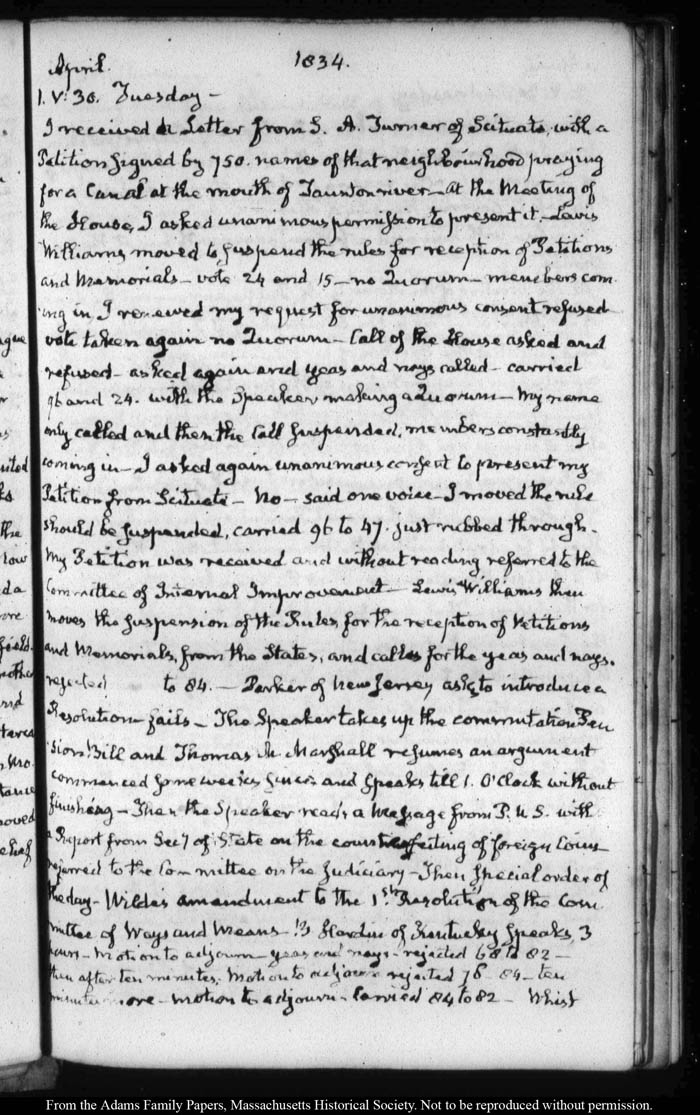 April. 1834.
1. V: 30. Tuesday —
I received a Letter from S. A. Turner of Scituate, with a
Petition signed by 750. names of that neighbourhood praying
for a Canal at the mouth of Taunton river — At the Meeting of
the House, I asked unanimous permission to present it — Lewis
Williams moved to suspend the rules for reception of Petitions
and Memorials — vote 24 and 15 — no Quorum — members com
ing in, I renewed my request for unanimous consent refused
vote taken again no Quorum — Call of the House asked and
refused — asked again and yeas and nays called — carried
96 and 24. with the Speaker making a Quorum — My name
only called and then the Call suspended, members constantly
coming in — I asked again unanimous consent to present my
Petition from Scituate — No — said one voice — I moved the rule
should be suspended, carried 96 to 47. just rubbed through.
My Petition was received and without reading referred to the
Committee of Internal Improvement — Lewis Williams then
moves the suspension of the Rules, for the reception of Petitions
and Memorials, from the States, and calls for the yeas and nays.
rejected to 84. — Parker of New Jersey asks to introduce a
Resolution fails — The Speaker takes up the commutation Pen
sion Bill and Thomas A. Marshall resumes an argument
commenced some weeks since and speaks till 1. O'Clock without
finishing — Then the Speaker reads a Message from P. U S. with
a Report from Secy of State on the counterfeiting of foreign Coins
referred to the Committee on the Judiciary — Then special order of
the day — Wilde's amendment to the 1st Resolution of the Com
mittee of Ways and Means Hardin of Kentucky speaks, 3
hours — Motion to adjourn — yeas and nays — rejected 68 to 82 —
then after ten minutes. Motion to adjourn rejected 78 84 — ten
minutes more — motion to adjourn — carried 84 to 82 — Whist
From the Adams Family Papers, Massachusetts Historical Society. Not to be reproduced without permission.